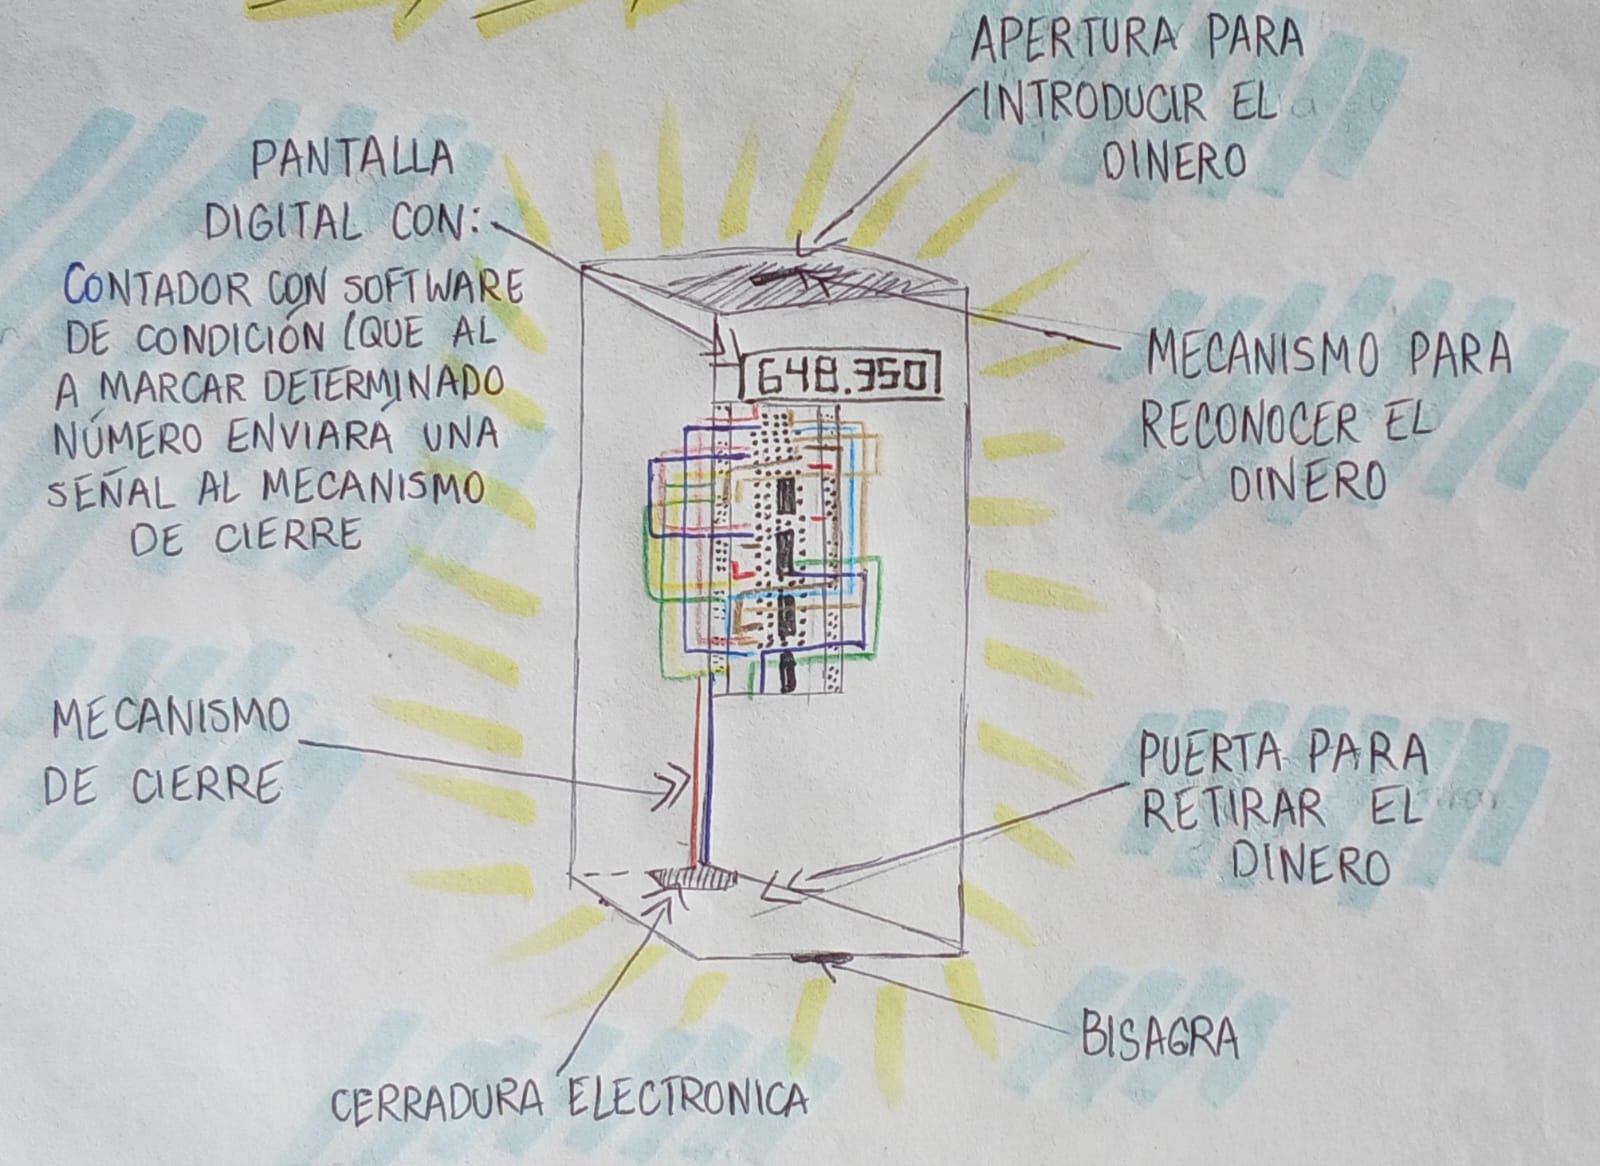 APERTURA PARA
INTRODUCIR EL
DINERO
PANTALLA
DIGITAL CON:
CONTADOR CON SOFTWARE
DE CONDICIÓN (QUE AL
A MARCAR DETERMINADO
NÚMERO ENVIARÁ UNA
SEÑAL AL MECANISMO
DE CIERRE
648.350
MECANISMO PARA
RECONOCER EL
DINERO
MECANISMO
DE CIERRE
PUERTA PARA
RETIRAR EL
DINERO
BISAGRA
CERRADURA ELECTRONICA